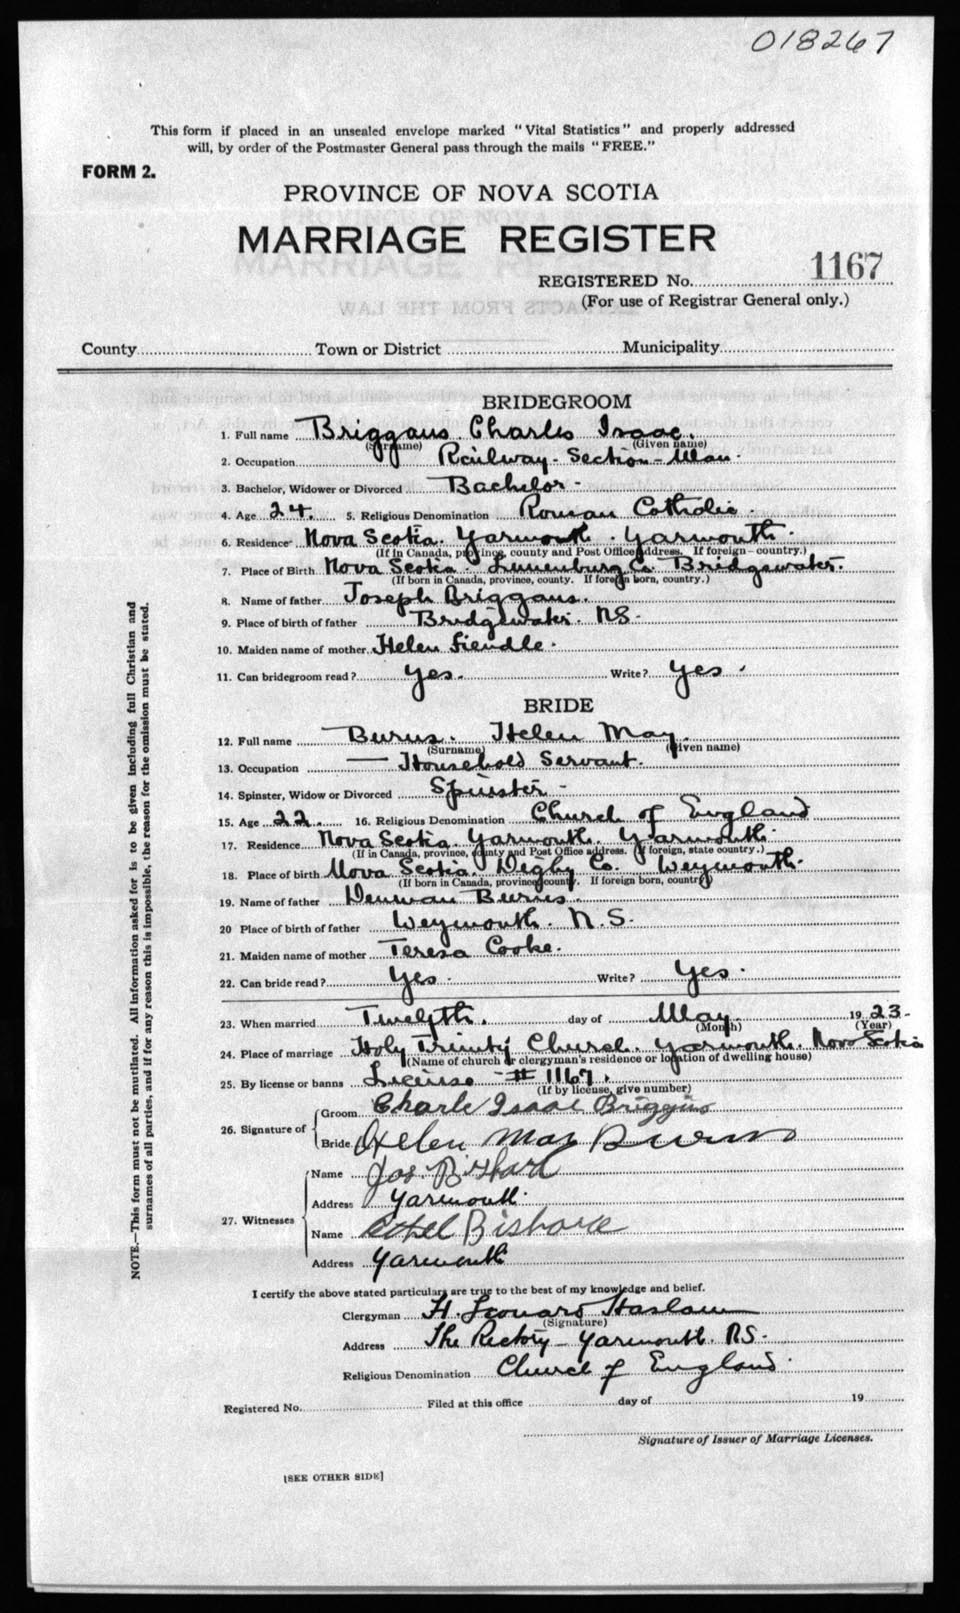 018267
This form if placed in an unsealed envelope marked "Vital Statistics" and properly addressed
will, by order of the Postmaster General pass through the mails "FREE."
FORM 2.
PROVINCE OF NOVA SCOTIA
MARRIAGE REGISTER
REGISTERED No. 1167
(For use of Registrar General only.)
County Town or District Municipality
BRIDEGROOM
1. Full name Briggans Charles Isaac.
(Surname) (Given name)
2. Occupation Railway-Section-Man.
3. Bachelor, Widower or Divorced Bachelor-
4. Age 24. 5. Religious Denomination Roman Catholic.
6. Residence Nova Scotia. Yarmouth. Yarmouth.
(If in Canada, province, county and Post Office address. If foreign-country.)
7. Place of Birth Nova Scotia. Lunenburg Co. Bridgewater.
(If born in Canada, province, county. If foreign born, country.)
8. Name of father Joseph Briggans.
9. Place of birth of father Bridgewater. NS.
10. Maiden name of mother Helen
11. Can bridegroom read? Yes. Write? Yes.
BRIDE
12. Full name Burns. Helen May.
(Surname) (Given name)
13. Occupation — Household Servant.
14. Spinster, Widow or Divorced Spinster-
15. Age 22. 16. Religious Denomination Church of England
17. Residence Nova Scotia. Yarmouth. Yarmouth.
(If in Canada, province, county and Post Office address. If foreign, state country.)
18. Place of birth Nova Scotia. Digby Co. Weymouth.
(If born in Canada, province, county. If foreign born, country)
19. Name of father Denman Burns.
20 Place of birth of father Weymouth. N.S.
21. Maiden name of mother Teresa Cooke.
22. Can bride read? Yes. Write? Yes.
23. When married Twelfth. day of May. 1923.
(Month) (Year)
24. Place of marriage Holy Trinity Church. Yarmouth. Nova Scotia
(Name of church or clergyman's residence or location of dwelling house)
25. By license or banns License # 1167.
(If by license, give number)
26. Signature of
Groom Charle Isaac Briggins
Bride Helen May Burns
27. Witnesses
Name Jos.
Address Yarmouth.
Name Ethel
Address Yarmouth
I certify the above stated particulars are true to the best of my knowledge and belief.
Clergyman H. Leonard Haslam
(Signature)
Address The Rectory-Yarmouth. NS.
Religious Denomination Church of England.
Registered No. Filed at this office day of 19
Signature of Issuer of Marriage Licenses.
[SEE OTHER SIDE]
NOTE.—This form must not be mutilated. All information asked for is to be given including full Christian and
surnames of all parties, and if for any reason this is impossible, the reason for the omission must be stated.